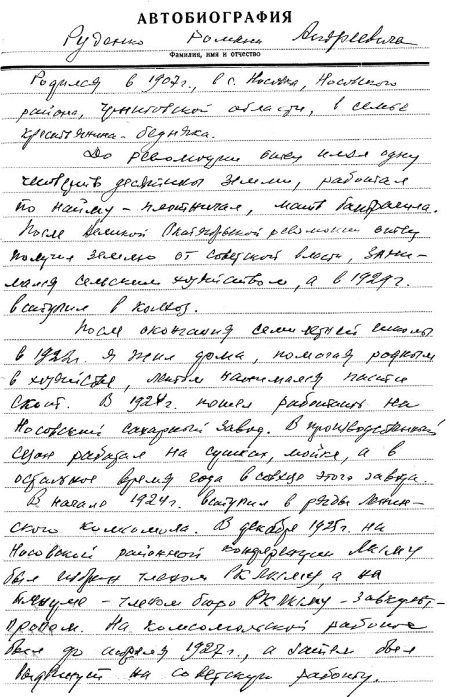 АВТОБИОГРАФИЯ
Руденко Романа Андреевича
Фамилия, имя и отчество
Родился в 1907 г., в с. Носовка, Носовского
района, Черниговской области, в семье
крестьянина-бедняка.
До революции отец имел одну
четверть десятины земли, работал
по найму - плотничал, мать батрачила.
После Великой Октябрьской революции отец
получил землю от советской власти, зани-
мался сельским хозяйством, а в 1929 г.
вступил в колхоз.
После окончания семилетней школы
в 1922 г. я жил дома, помогая родным
в хозяйстве, летом нанимался пасти
скот. В 1924 г. пошел работать на
Носовский сахарный завод. В производственный
сезон работал на сушке, мойке, а в
остальное время года в совхозе этого завода.
В начале 1924 г. вступил в ряды Ленин-
ского комсомола. В декабре 1925 г. на
Носовской районной конференции ЛКСМУ
был избран членом РКЛКСМУ а на
пленуме - членом бюро РКЛКСМУ - завкульт-
пропом. На комсомольской работе
был до апреля 1927 г., а затем был
выдвинут на советскую работу.